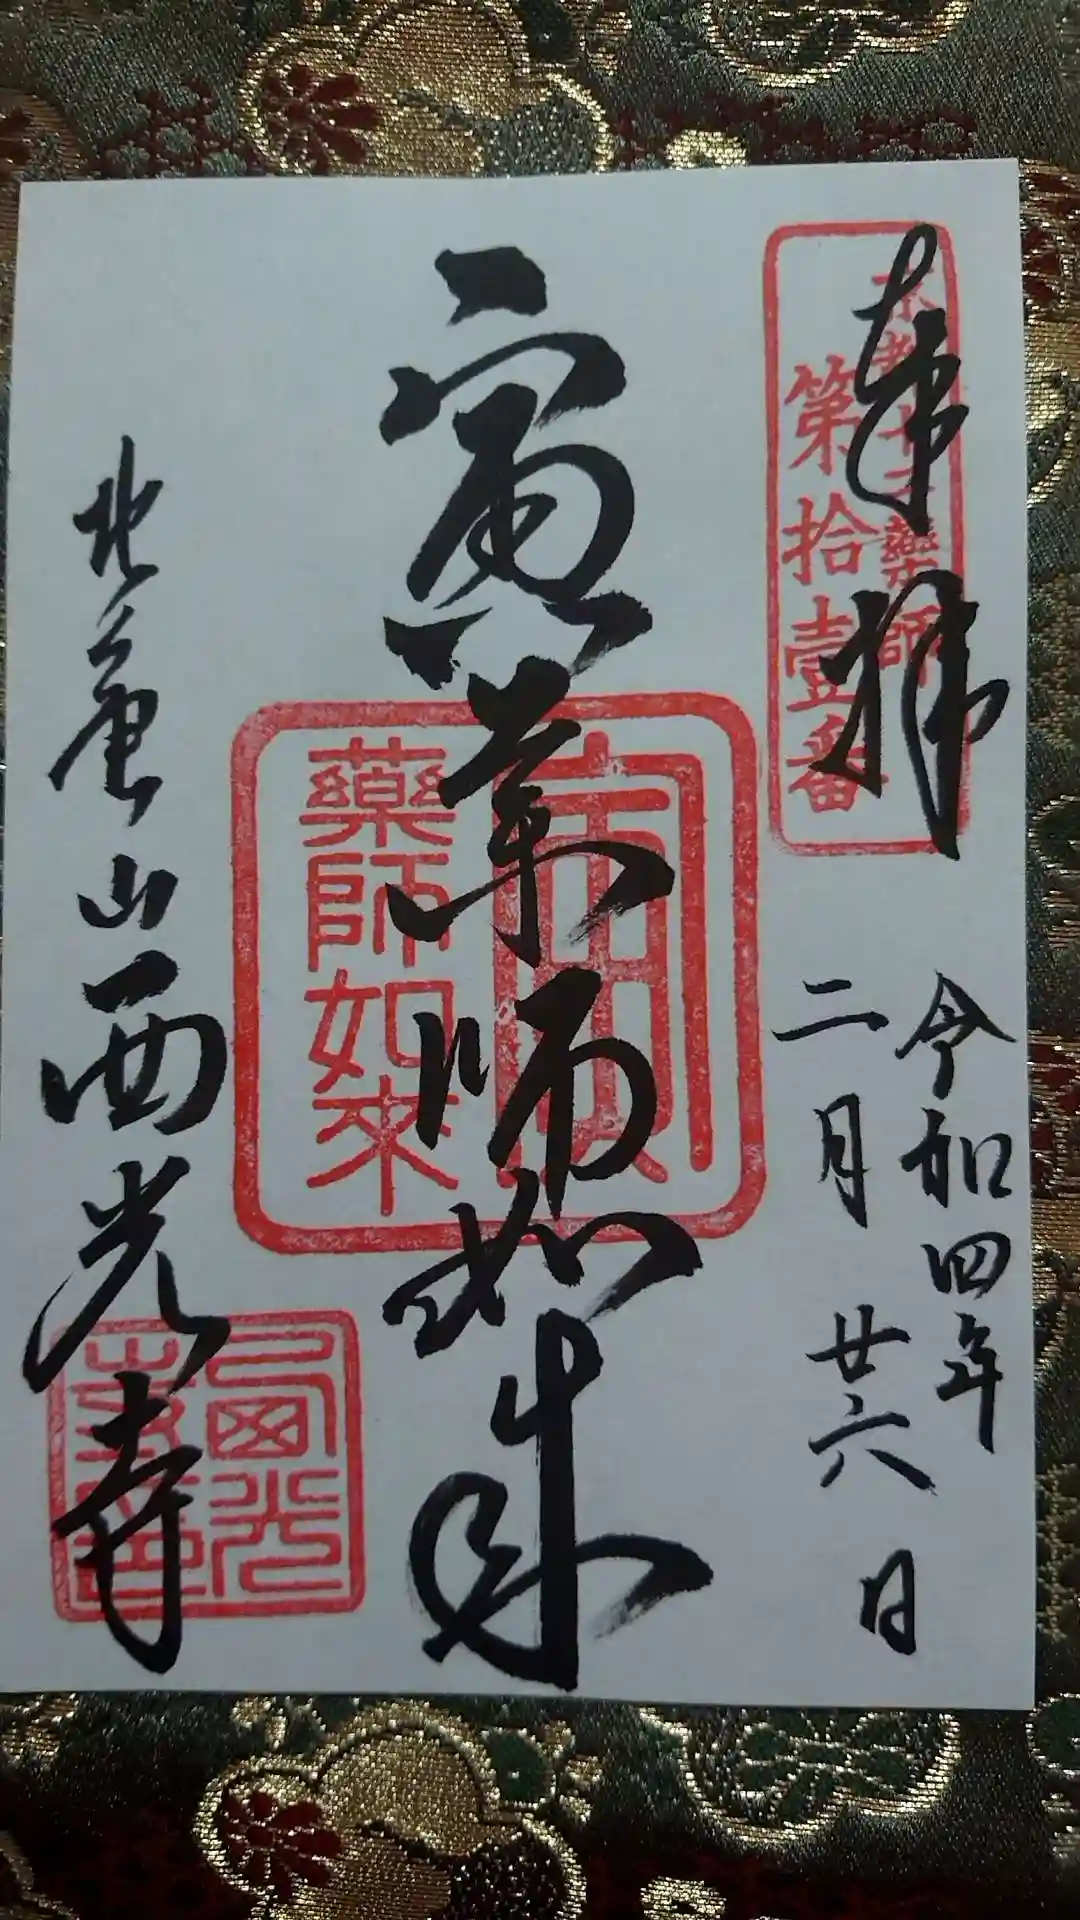 奉拝
京都十二藥師
第拾壹番
令和四年
二月廿六日
寅薬師如来
寅
藥師如來
北
山西光寺
西光